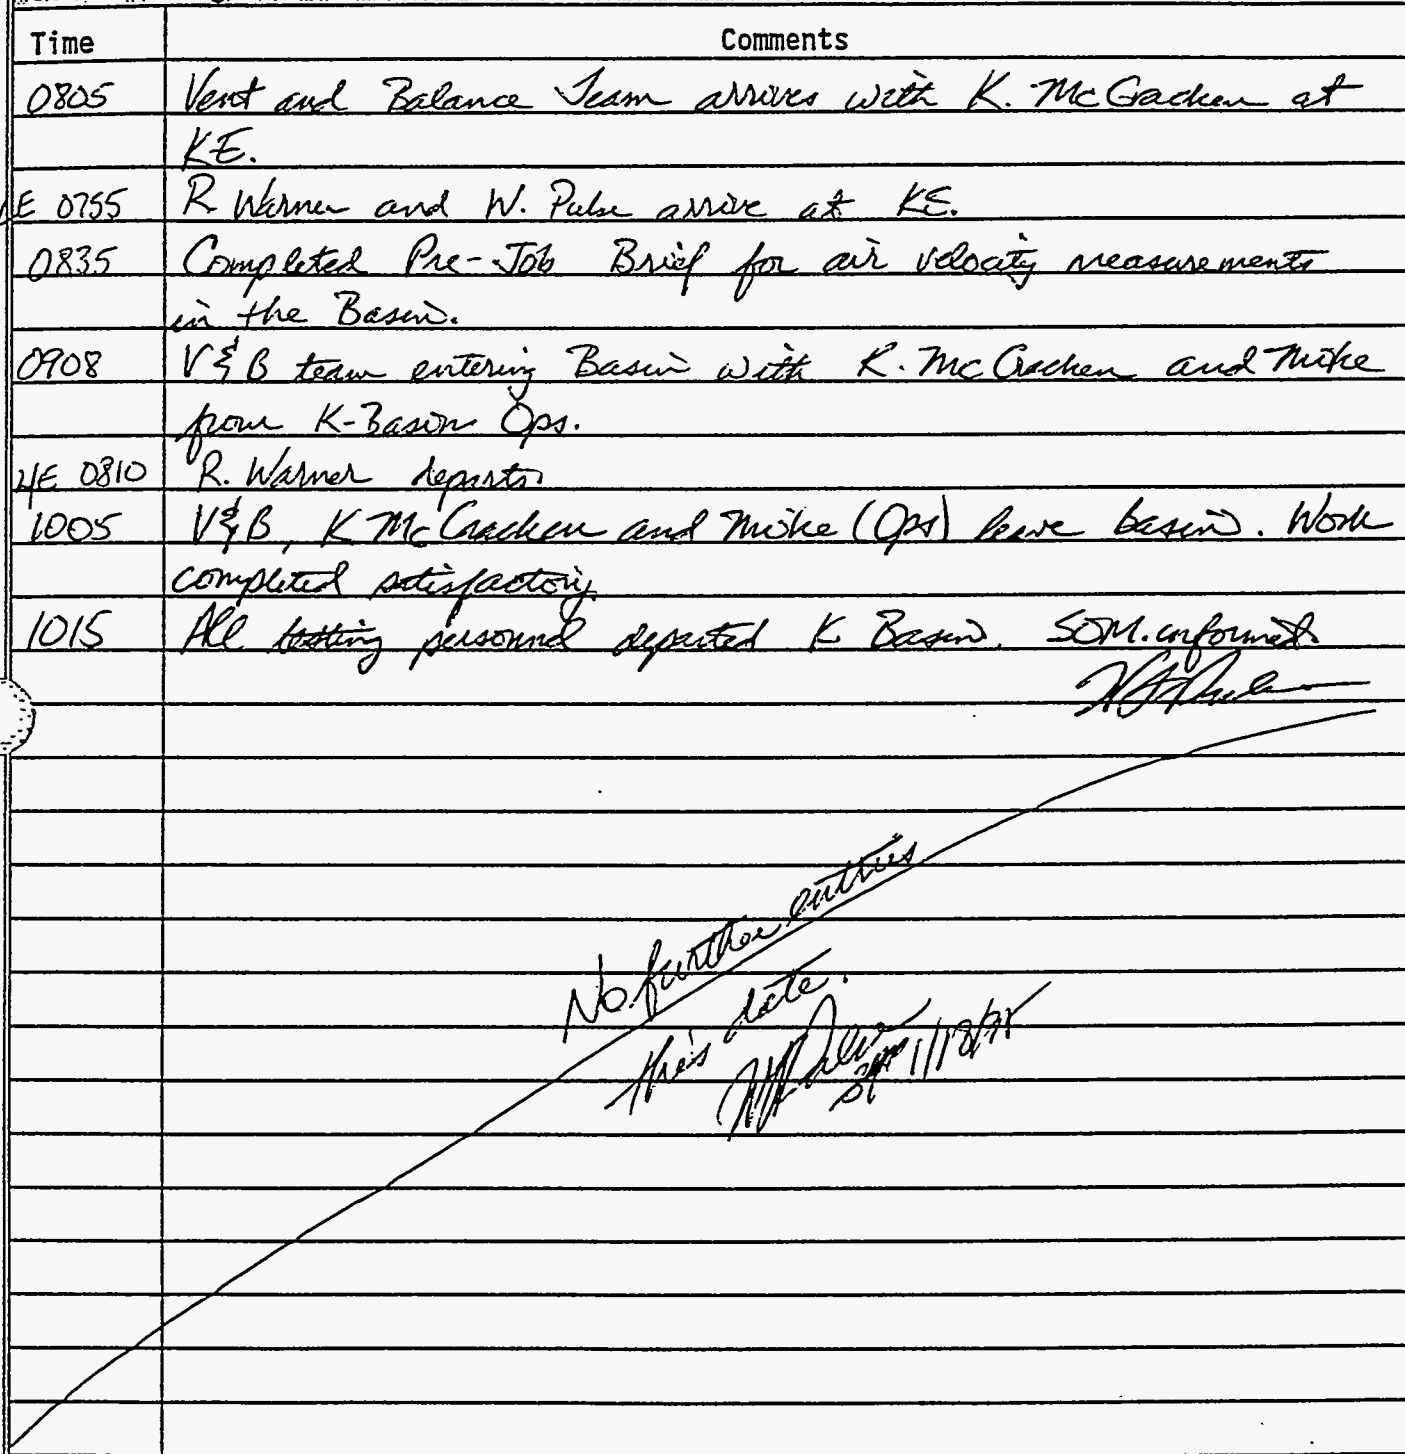 Time Comments
0805 Vent and Balance Team arrives with K. McCracken at
KE.
LE 0755 R Warner and W. Pulse arrive at KE.
0835 Completed Pre-Job Brief for air velocity measurements
in the Basin.
0908 V&B team entering Basin with K. McCracken and Mike
from K-Basin Ops.
LE 0810 R. Warner departs
1005 V&B, K McCracken and Mike (Ops) leave basin. Work
completed satisfactory.
1015 All testing personnel departed K Basin. SOM informed.
No further entries
this date.